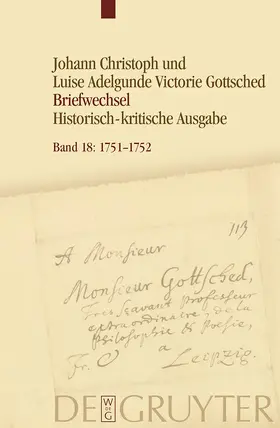 Johann Christoph und
Luise Adelgunde Victorie Gottsched
Briefwechsel
Historisch-kritische Ausgabe
Band 18: 1751–1752
113
A Monsieur
Monsieur Gottsched,
Tres sçavant Professeur
extraordinaire, de la
Philosophie & Poesie,
Fr. à Leipzig.
DE GRUYTER